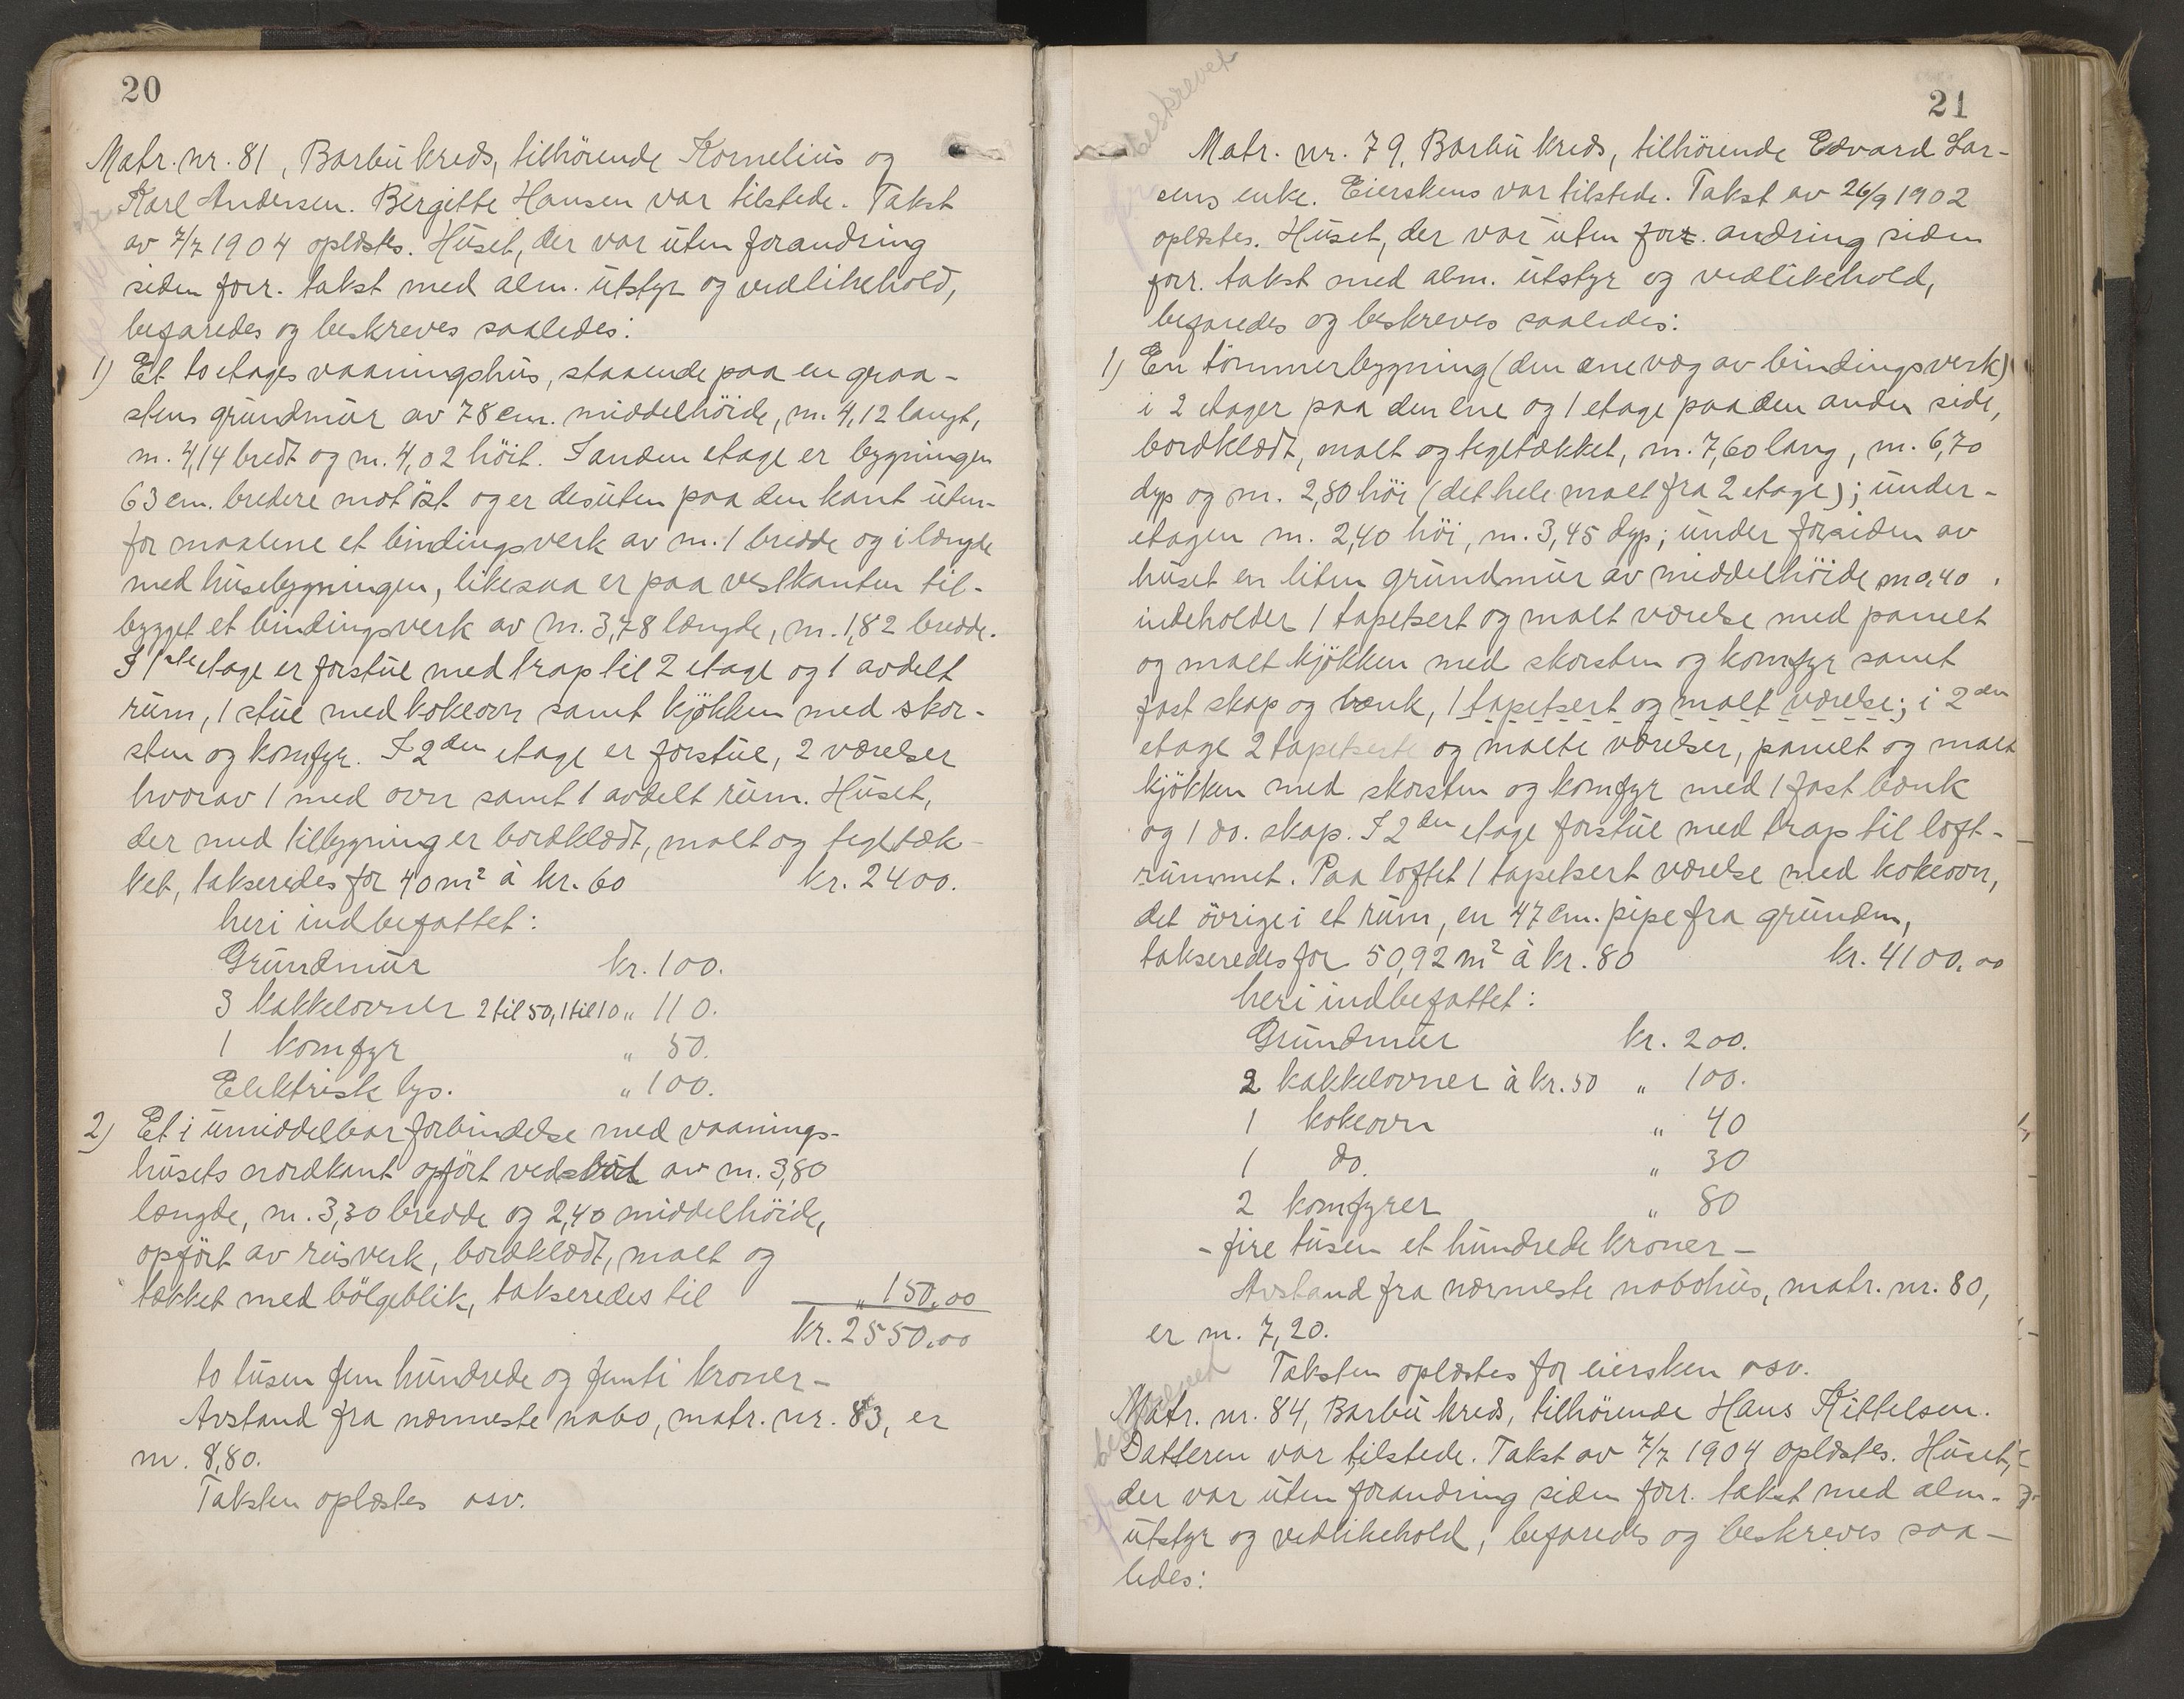 20
Matr. nr. 81, Barbu kreds, tilhörende Kornelius og
Karl Andersen. Birgitte Hansen var tilstede. Takst
av 7/7 1904 oplæstes. Huset, der var uten forandring
siden forr. takst med alm. utstyr og vedlikehold,
befaredes og beskreves saaledes:
1) Et to etages vaaningshus, staaende paa en graa-
stens grundmur av 78 cm. middelhöide, m. 4,12 langt,
m. 4,14 bredt og m. 4,02 höit. I anden etage er bygningen
63 cm. bredere mot öst og er desuten paa den kant uten-
for maalene et bindingsverk av m. 1 bredde og i længde
med husebygningen, likesaa er paa vestkanten til-
bygget et bindingsverk av m. 3,78 længde, m. 1,82 bredde.
I 1ste etage er forstue med trap til 2 etage og 1 avdelt
rum, 1 stue med kokeovn samt kjökken med skor-
sten og komfyr. I 2den etage er forstue, 2 værelser
hvorav 1 med ovn samt 1 avdelt rum. Huset,
der med tilbygning er bordklædt, malt og teglták-
ket, takseredes for 40 m² à kr. 60 kr. 2400.
heri indbefattet:
Grundmur kr. 100.
3 kakkelovner 2 til 50, 1 til 10 " 110.
1 komfyr " 50.
Elektrisk lys. " 100.
2) Et i umiddelbar forbindelse med vaanings-
husets nordkant opfört vedskur av m. 3,80
længde, m. 3,30 bredde og 2,40 middelhöide,
opfört av reisverk, bordklædt, malt og
tækket med bölgeblik, takseredes til " 150.00
kr. 2550.00
to tusen fem hundrede og femti kroner-
Avstand fra nærmeste nabo, matr. nr. 83, er
m. 8,80.
Taksten oplæstes osv.
21
beskrevet
Matr. nr. 79, Barbu kreds, tilhörende Edvard Lar-
sens enke. Eierskens var tilstede. Takst av 26/9 1902
oplæstes. Huset, der var uten for. andring siden
forr. takst med alm. utstyr og vedlikehold,
befaredes og beskreves saaledes:
1) En tömmerbygning (den ene væg av bindingsverk)
i 2 etager paa den ene og 1 etage paa den anden side,
bordklædt, malt og tegltækket, m. 7,60 lang, m. 6,70
dyp og m. 2,80 höi (det hele maalt fra 2 etage); under-
etagen m. 2,40 höi, m. 3,45 dyp; under forsiden av
huset en liten grundmur av middelhöide m 0,40.
indeholder 1 tapetsert og malt værelse med panelt
og malt kjökken med skorsten og komfyr samt
fast skap og bænk, 1 tapetsert og malt værelse; i 2den
etage 2 tapetserte og malte værelser, panelt og malt
kjökken med skorsten og komfyr med 1 fast bænk
og 1 do. skap. I 2den etage forstue med trap til loft-
rummet. Paa loftet 1 tapetsert værelse med kokeovn,
det övrige i et rum, en 47 cm. pipe fra grunden,
takseredes for 50,92 m² à kr. 80 kr. 4100.00
heri indbefattet:
Grundmur kr. 200.
2 kakkelovner à kr. 50 " 100.
1 kokeovn " 40
1 do. " 30
2 komfyrer " 80
- fire tusen et hundrede kroner -
Avstand fra nærmeste nabohus, matr. nr. 80,
er m. 7,20.
Taksten oplæstes for eiersken osv.
Matr. nr. 84, Barbu kreds, tilhörende Hans Kittelsen.
Datteren var tilstede. Takst av 7/7 1904 oplæstes. Huset,
der var uten forandring siden forr. takst med alm.
utstyr og vedlikehold, befaredes og beskreves saa-
ledes: